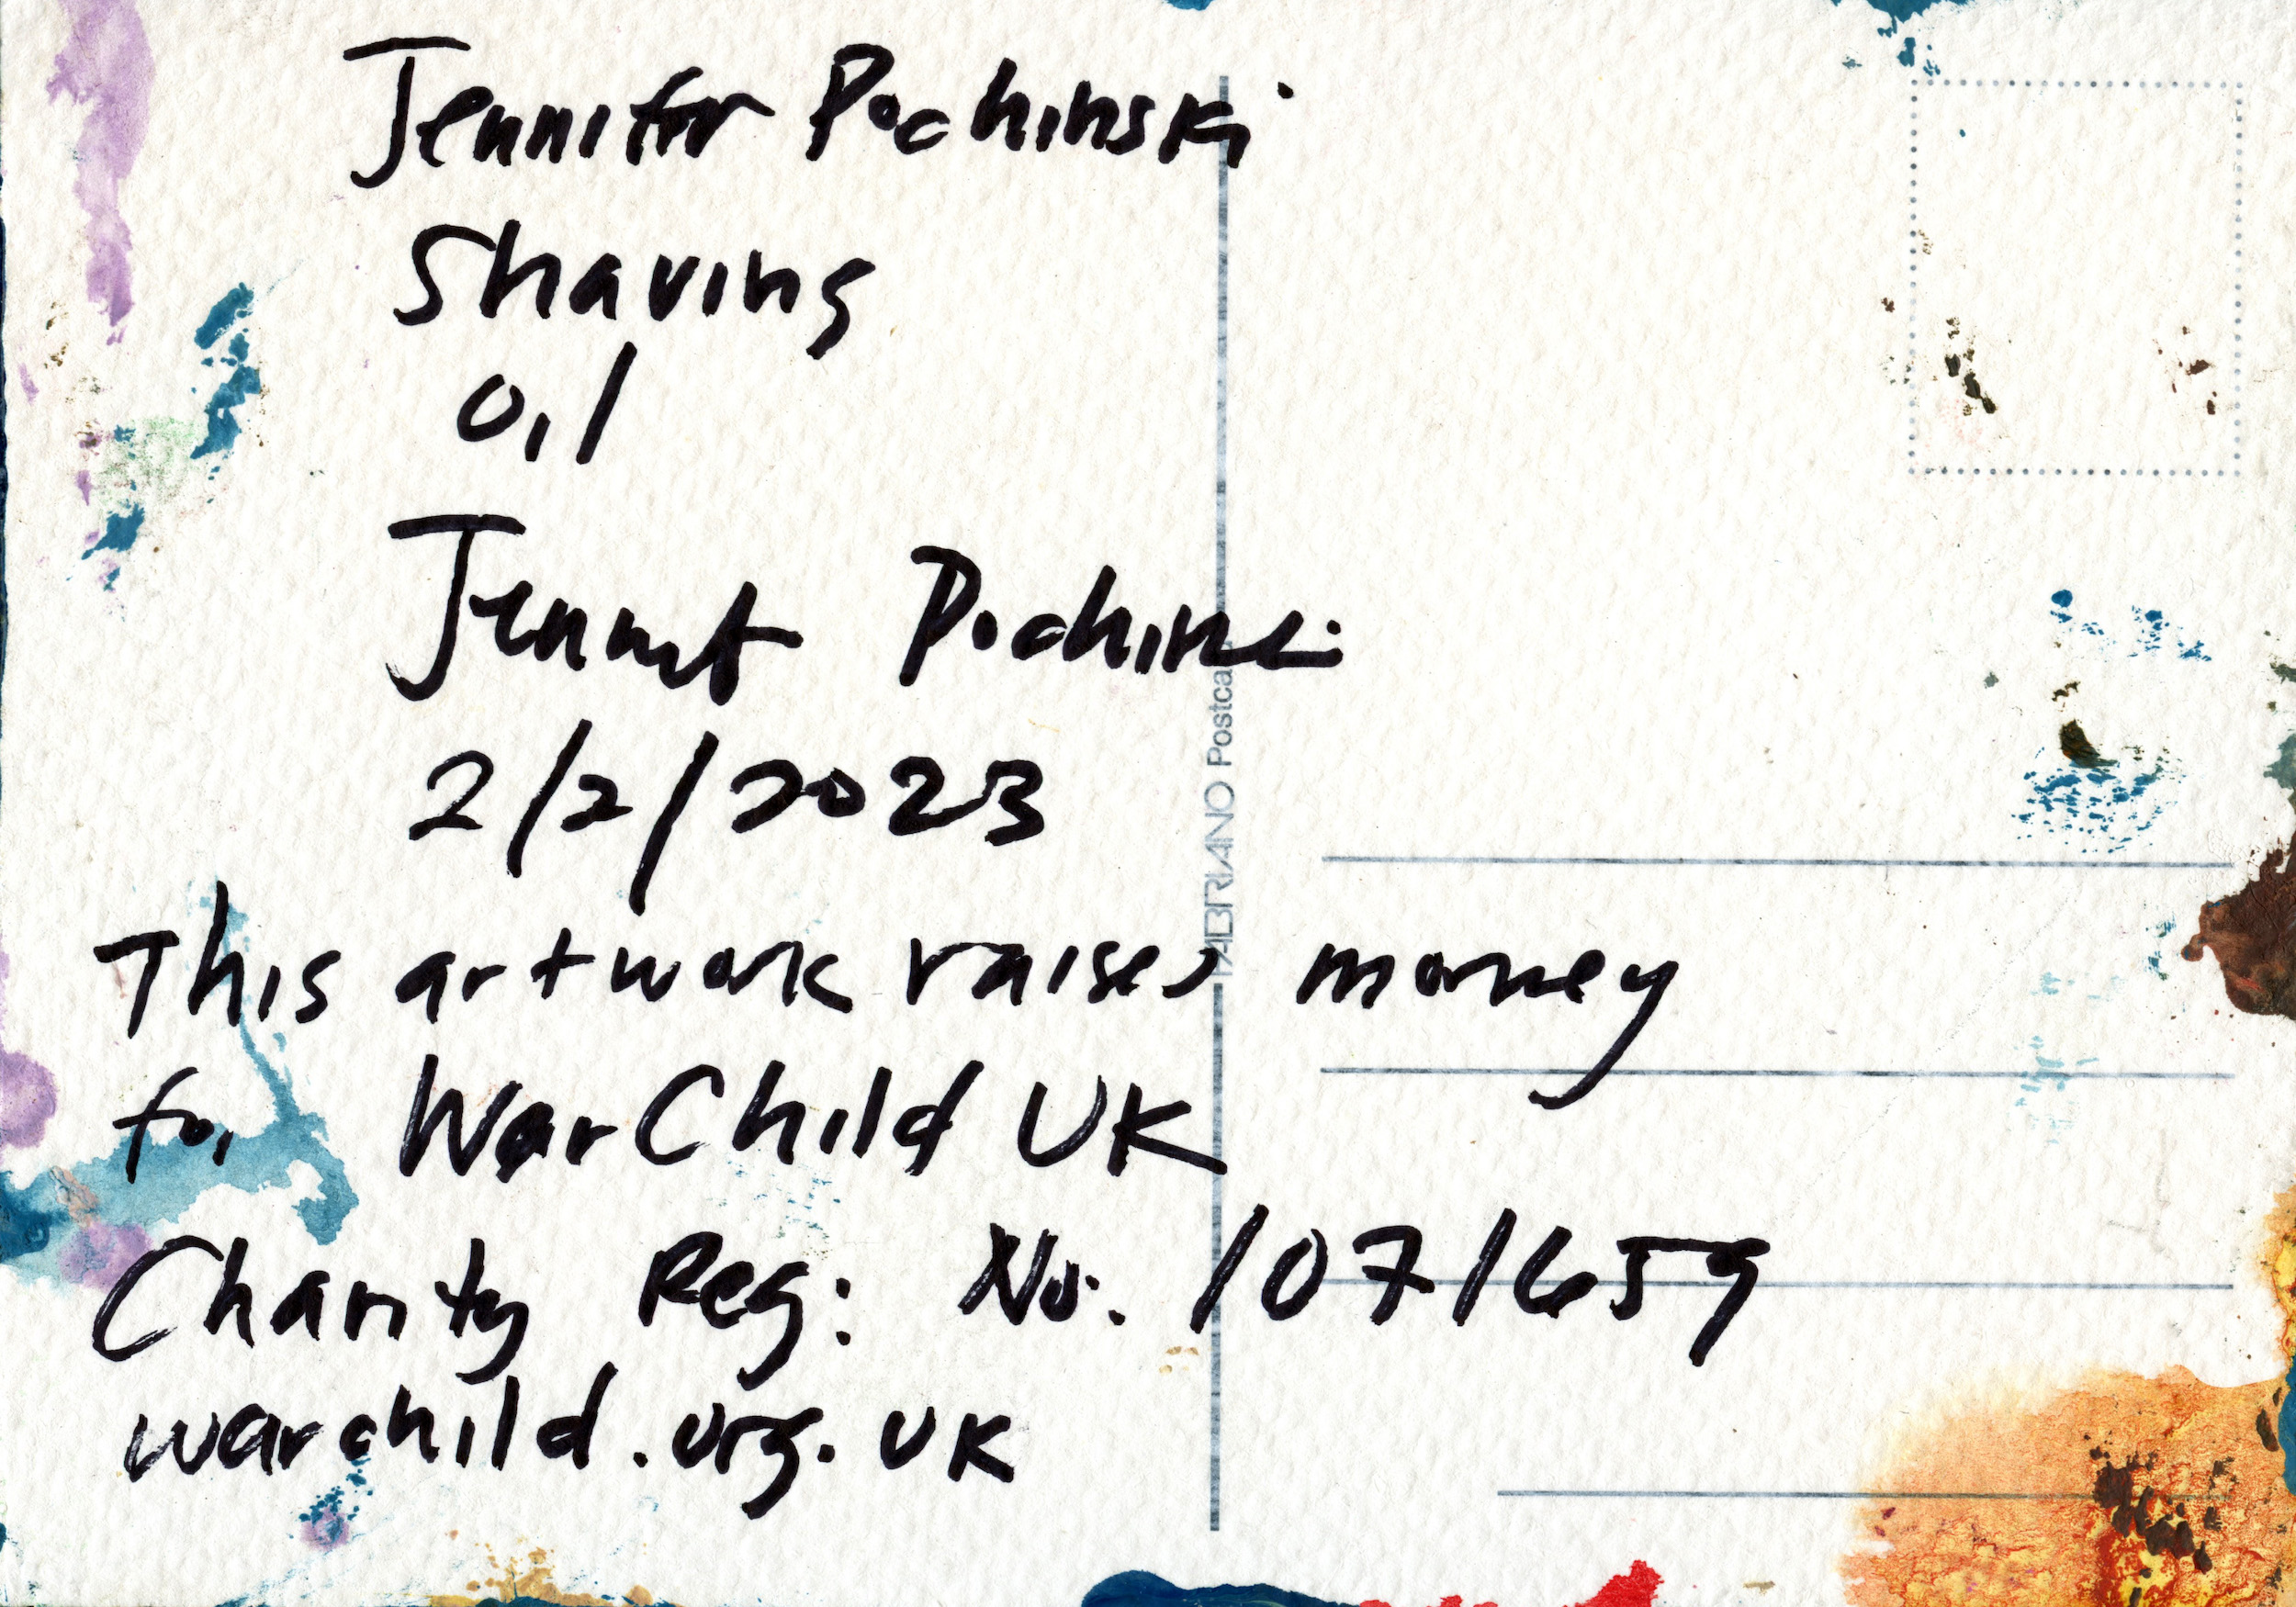 Jennifer Pochinski
Shaving
Oil
Jennifer Pochinski
2/2/2023
This artwork raises money
for WarChild UK
Charity Reg: No. 1071659
warchild.org.uk
FABRIANO Postca